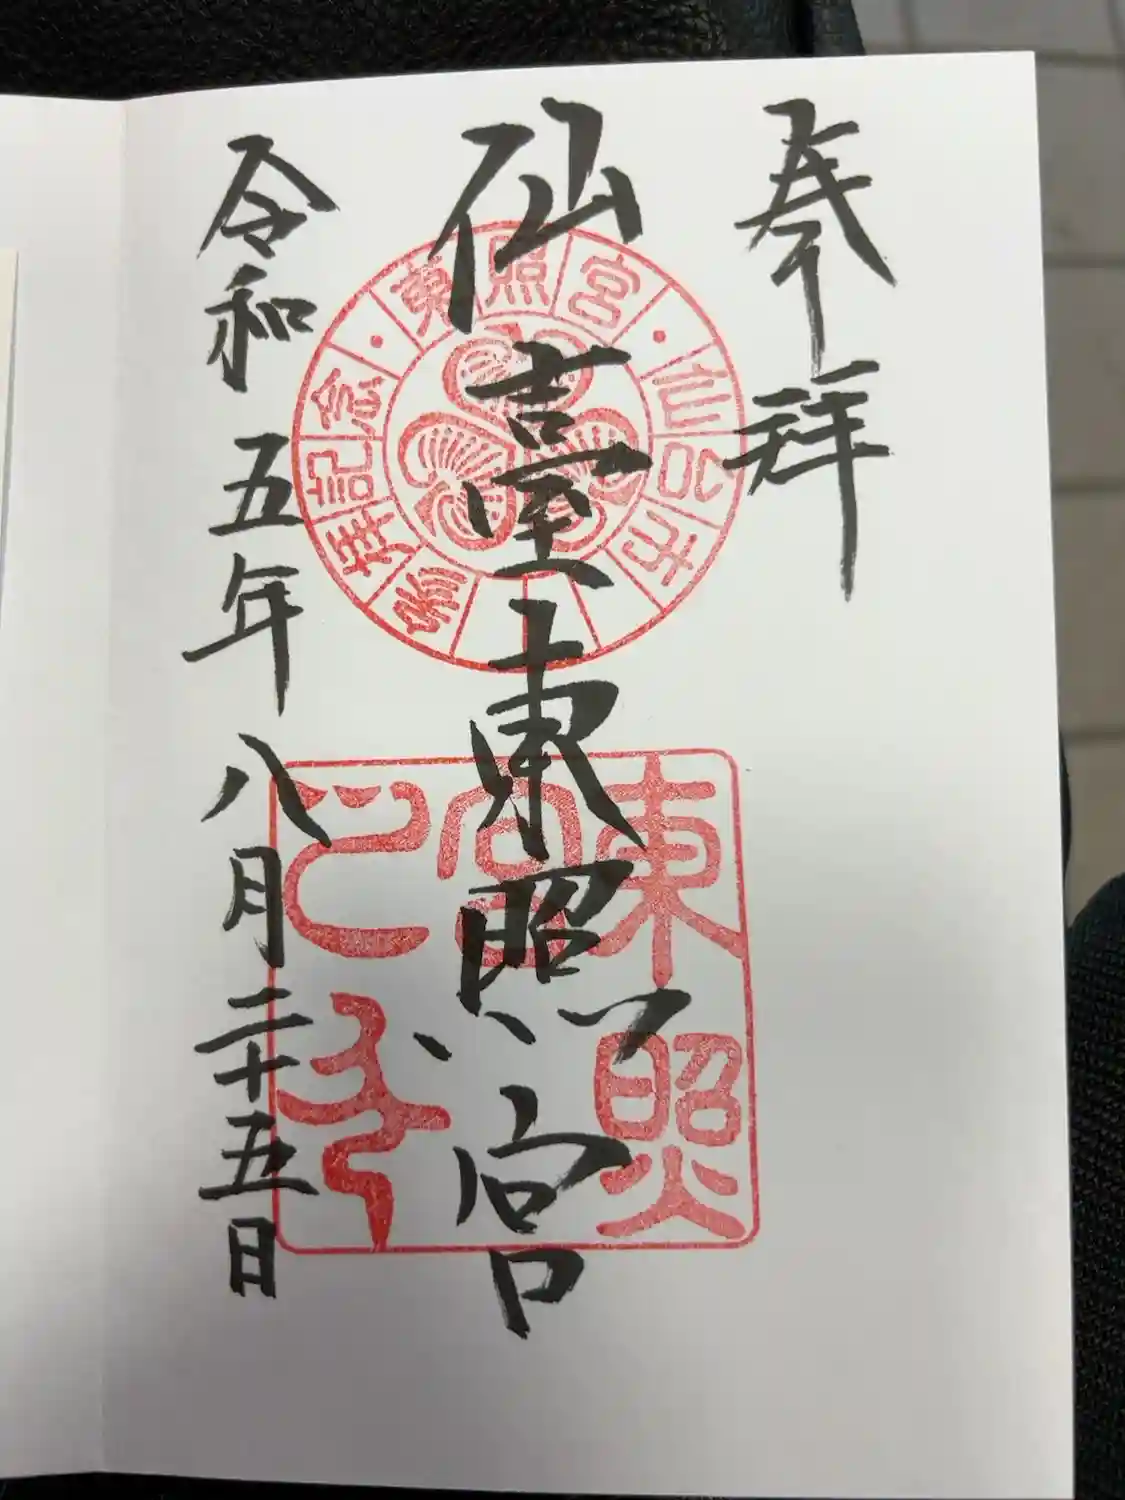 奉拝
仙臺東照宮
令和五年八月二十五日
東照宮
仙台市
参拝記念
東照
宮